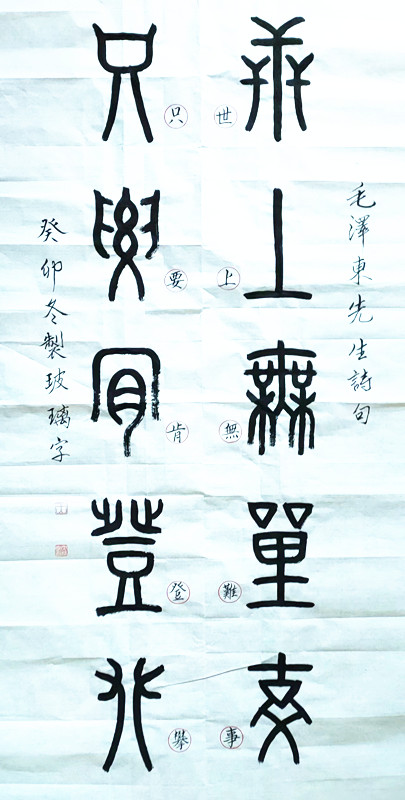 毛澤東先生詩句
世上無難事
世上無難事
只要肯登攀
只要肯登攀
癸卯冬製玻璃字